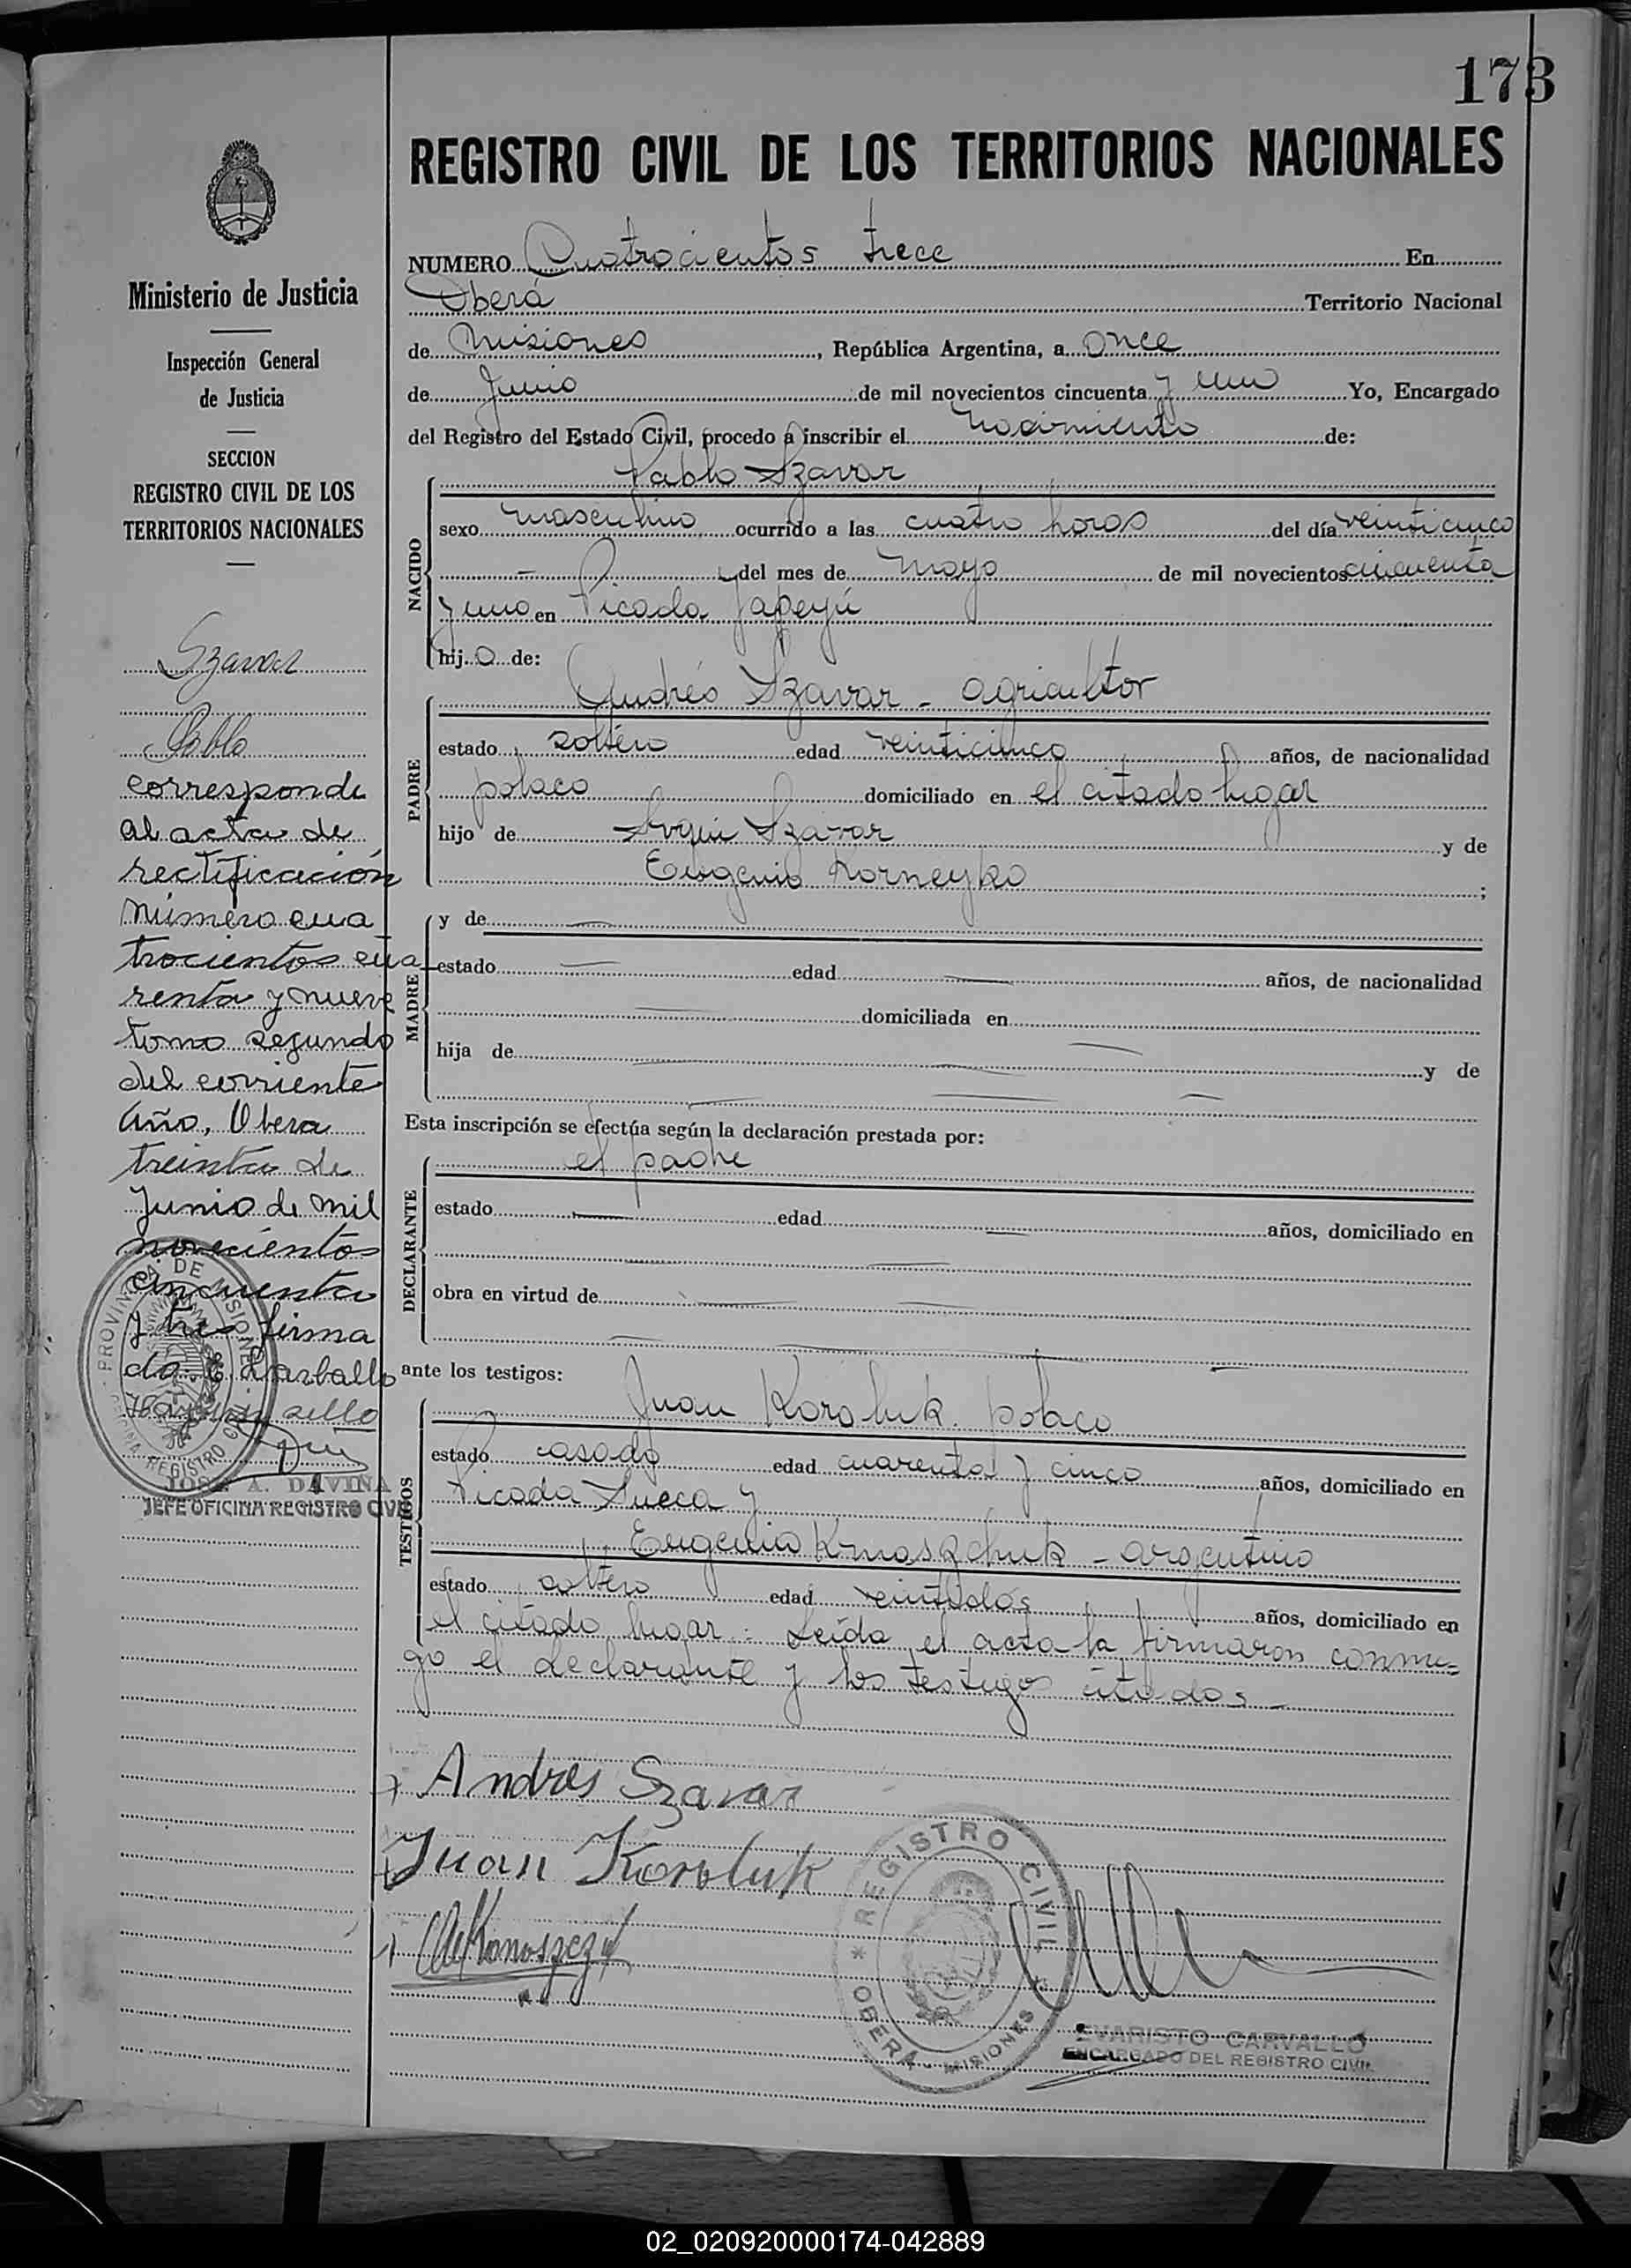 173
REGISTRO CIVIL DE LOS TERRITORIOS NACIONALES
Ministerio de Justicia
Inspección General
de Justicia
SECCION
REGISTRO CIVIL DE LOS
TERRITORIOS NACIONALES
Szavar
Pablo
corresponde
al acta de
rectificación
número cua
trocientos cua
renta y nueve
tomo segundo
del corriente
año, Obera
treinta de
Junio de mil
novecientos
cincuenta
y tres firma
do. E. Carballo
Hay un sello
PROVINCIA DE MISIONES
REGISTRO
JOSE A. DAVIÑA
JEFE OFICINA REGISTRO CIVIL
NUMERO Cuatrocientos trece En
Oberá Territorio Nacional
de Misiones, República Argentina, a once
de Junio de mil novecientos cincuenta y uno Yo, Encargado
del Registro del Estado Civil, procedo a inscribir el nacimiento de:
NACIDO
Pablo Szavar
sexo masculino ocurrido a las cuatro horas del día veinticinco
— del mes de mayo de mil novecientos cincuenta
y uno en Picada Yapeyú
hijo de:
PADRE
Andrés Szavar - agricultor
estado soltero edad veinticinco años, de nacionalidad
polaco domiciliado en el citado lugar
hijo de Szavar y de
Eugenia Korneyko ;
MADRE
y de —
estado — edad — años, de nacionalidad
— domiciliada en
hija de — y de
—
Esta inscripción se efectúa según la declaración prestada por:
DECLARANTE
el padre
estado — edad — años, domiciliado en
—
obra en virtud de —
—
ante los testigos:
TESTIGOS
Juan Koroluk. polaco
estado casado edad cuarenta y cinco años, domiciliado en
Picada Sueca y
Eugenio - argentino
estado soltero edad veintidos años, domiciliado en
el citado lugar: Leída el acta la firmaron conmi=
go el declarante y los testigos citados -
Andres Szavar
Juan Koroluk
REGISTRO CIVIL
* OBERA - MISIONES
EVARISTO CARVALLO
ENCARGADO DEL REGISTRO CIVIL
02_020920000174-042889